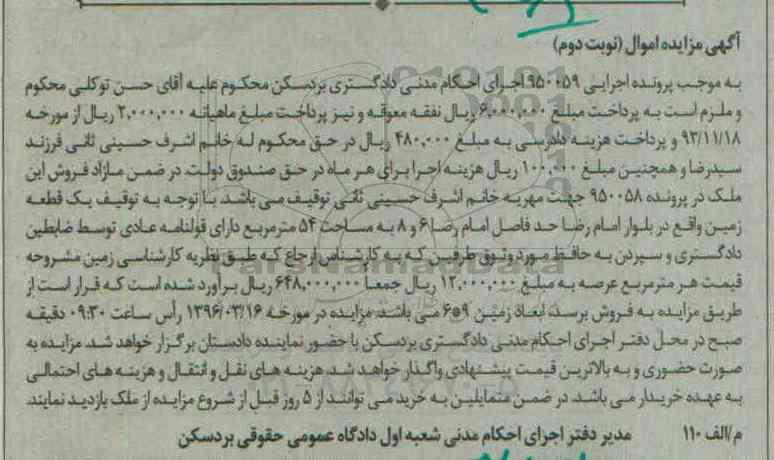 آگهی مزایده اموال (نوبت دوم)
به موجب پرونده اجرایی ۹۵۰۰۵۹ اجرای احکام مدنی دادگستری بردسکن محکوم علیه آقای حسن توکلی محکوم
و ملزم است به پرداخت مبلغ ۶,۰۰۰,۰۰۰ ریال نفقه معوقه و نیز پرداخت مبلغ ماهیانه ۲,۰۰۰,۰۰۰ ریال از مورخه
۹۳/۱۱/۱۸ و پرداخت هزینه دادرسی به مبلغ ۴۸۰,۰۰۰ ریال در حق محکوم له خانم اشرف حسینی ثانی فرزند
سیدرضا و همچنین مبلغ ۱۰۰,۰۰۰ ریال هزینه اجرا برای هر ماه در حق صندوق دولت. در ضمن مازاد فروش این
ملک در پرونده ۹۵۰۰۵۸ جهت مهریه خانم اشرف حسینی ثانی توقیف می باشد. با توجه به توقیف یک قطعه
زمین واقع در بلوار امام رضا حد فاصل امام رضا ۶ و ۸ به مساحت ۵۴ مترمربع دارای قولنامه عادی توسط ضابطین
دادگستری و سپردن به حافظ مورد وثوق طرفین که به کارشناس ارجاع که طبق نظریه کارشناسی زمین مشروحه
قیمت هر مترمربع عرصه به مبلغ ۱۲,۰۰۰,۰۰۰ ریال جمعا ۶۴۸,۰۰۰,۰۰۰ ریال برآورد شده است که قرار است از
طریق مزایده به فروش برسد، ابعاد زمین ۹*۶ می باشد. مزایده در مورخه ۱۳۹۶/۰۳/۱۶ رأس ساعت ۰۹:۳۰ دقیقه
صبح در محل دفتر اجرای احکام مدنی دادگستری بردسکن با حضور نماینده دادستان برگزار خواهد شد. مزایده به
صورت حضوری و به بالاترین قیمت پیشنهادی واگذار خواهد شد. هزینه های نقل و انتقال و هزینه های احتمالی
به عهده خریدار می باشد. در ضمن متمایلین به خرید می توانند از ۵ روز قبل از شروع مزایده از ملک بازدید نمایند.
م/الف ۱۱۰ مدیر دفتر اجرای احکام مدنی شعبه اول دادگاه عمومی حقوقی بردسکن
ParsNamadData